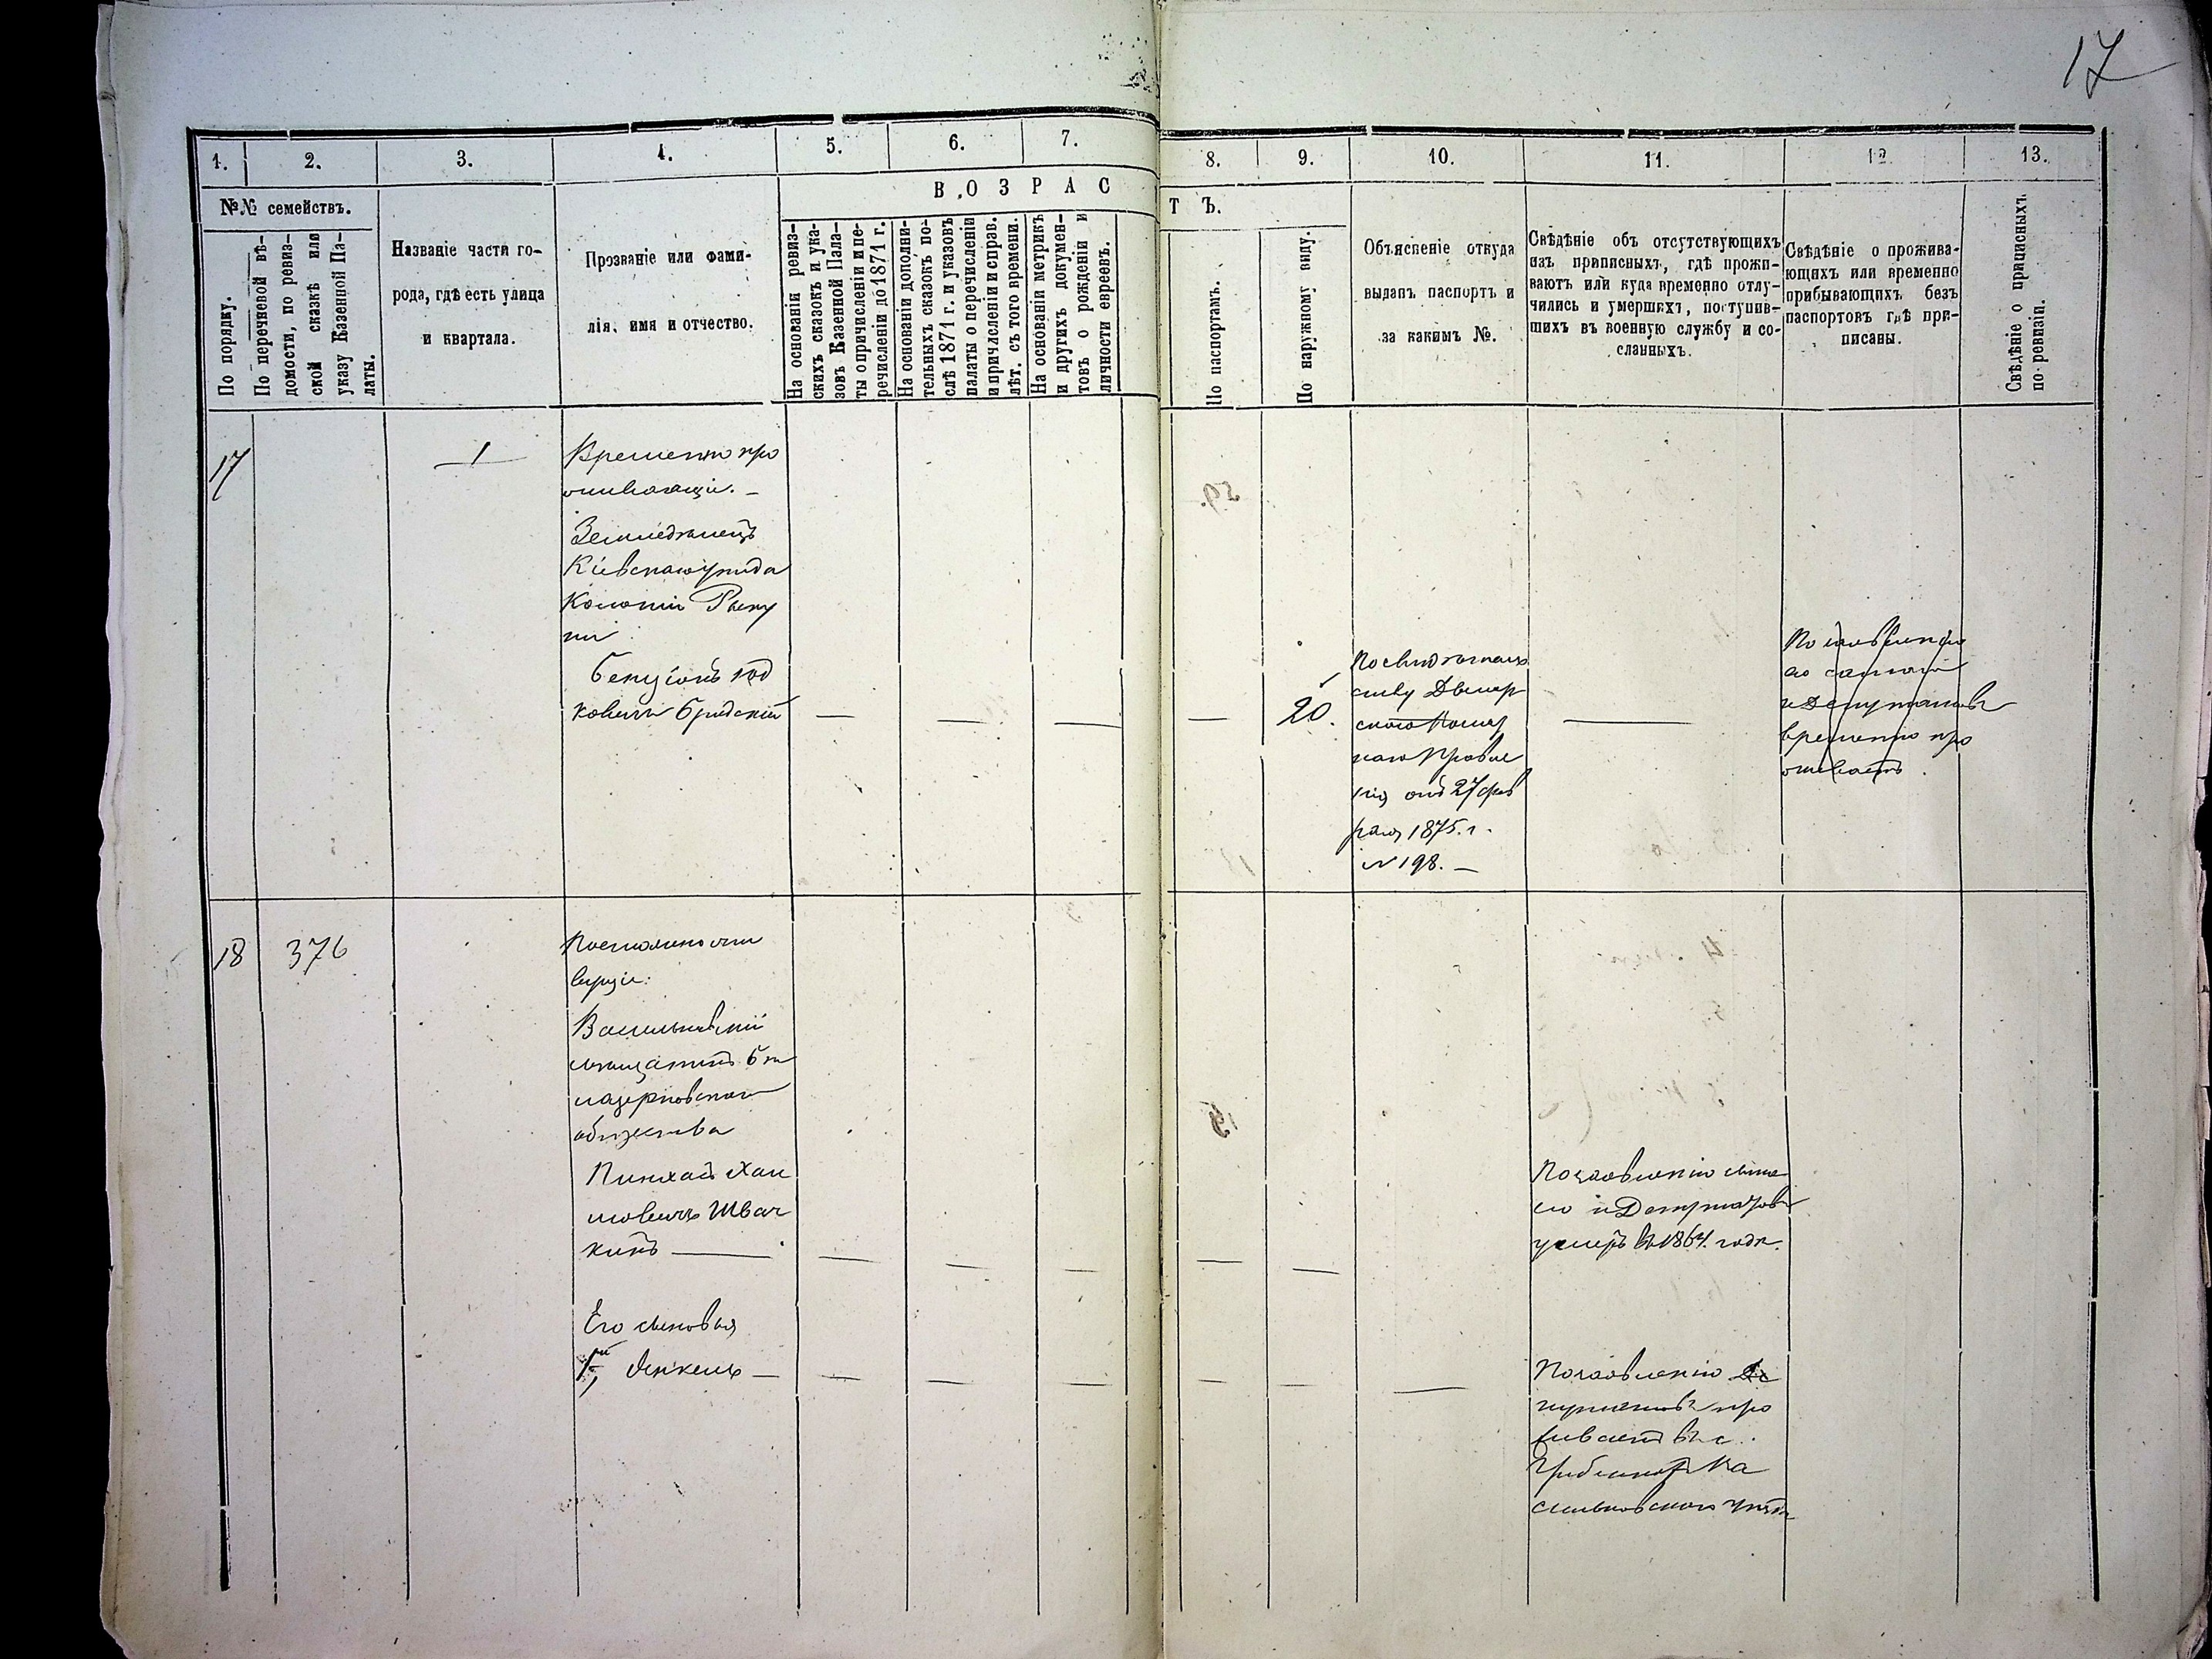 17
1.
2.
3.
4.
5.
6.
7.
8.
9.
10.
11.
12.
13.
№№ семействъ.
По порядку.
По перечневой вѣ-
домости, по ревиз-
ской сказкѣ или
указу Казенной Па-
латы.
Названіе части го-
рода, гдѣ есть улица
и квартала.
Прозваніе или фами-
лія, имя и отчество.
ВОЗРАС
ТЪ.
На основаніи ревиз-
скихъ сказокъ и ука-
зовъ Казенной Пала-
ты о причисленіи и пе-
речисленіи до 1871 г.
На основаніи дополни-
тельныхъ сказокъ по-
слѣ 1871 г. и указовъ
палаты о перечисленіи
и причисленіи и справ.
лѣт. съ того времени.
На основаніи метрикъ
и другихъ докумен-
товъ о рожденіи и
личности евреевъ.
По паспортамъ.
По наружному виду.
Объясненіе откуда
выданъ паспортъ и
за какимъ №.
Свѣдѣніе объ отсутствующихъ
изъ приписныхъ, гдѣ прожи-
ваютъ или куда временно отлу-
чились и умершихъ, поступив-
шихъ въ военную службу и со-
сланныхъ.
Свѣдѣніе о прожива-
ющихъ или временно
прибывающихъ безъ
паспортовъ гдѣ при-
писаны.
Свѣдѣніе о приписныхъ
по ревизіи.
17
1
Временно про
живающіе. —
Земледѣлецъ
Кіевскаго уѣзда
Колоніи
— — — — 20.
По свидѣтель
ству
наго Правле
нія отъ 27 фев
раля 1875. г.
N 198. —
—
По заявленію
и Депутатовъ
временно про
живаетъ.
18 376
Постоянно жи
вущіе:
Васильковскій
мѣщанинъ Бѣ
лоцерковскаго
общества
Пинхасъ Хаи
мовичъ Швач
кинъ —
— — — — —
По заявленію
и Депутатовъ
умеръ въ 1864. годѣ.
Его сыновья
1й, Янкель —
— — — — — —
По заявленію Де
путатовъ про
живаетъ въ с.
Ва
сильковского уѣзда